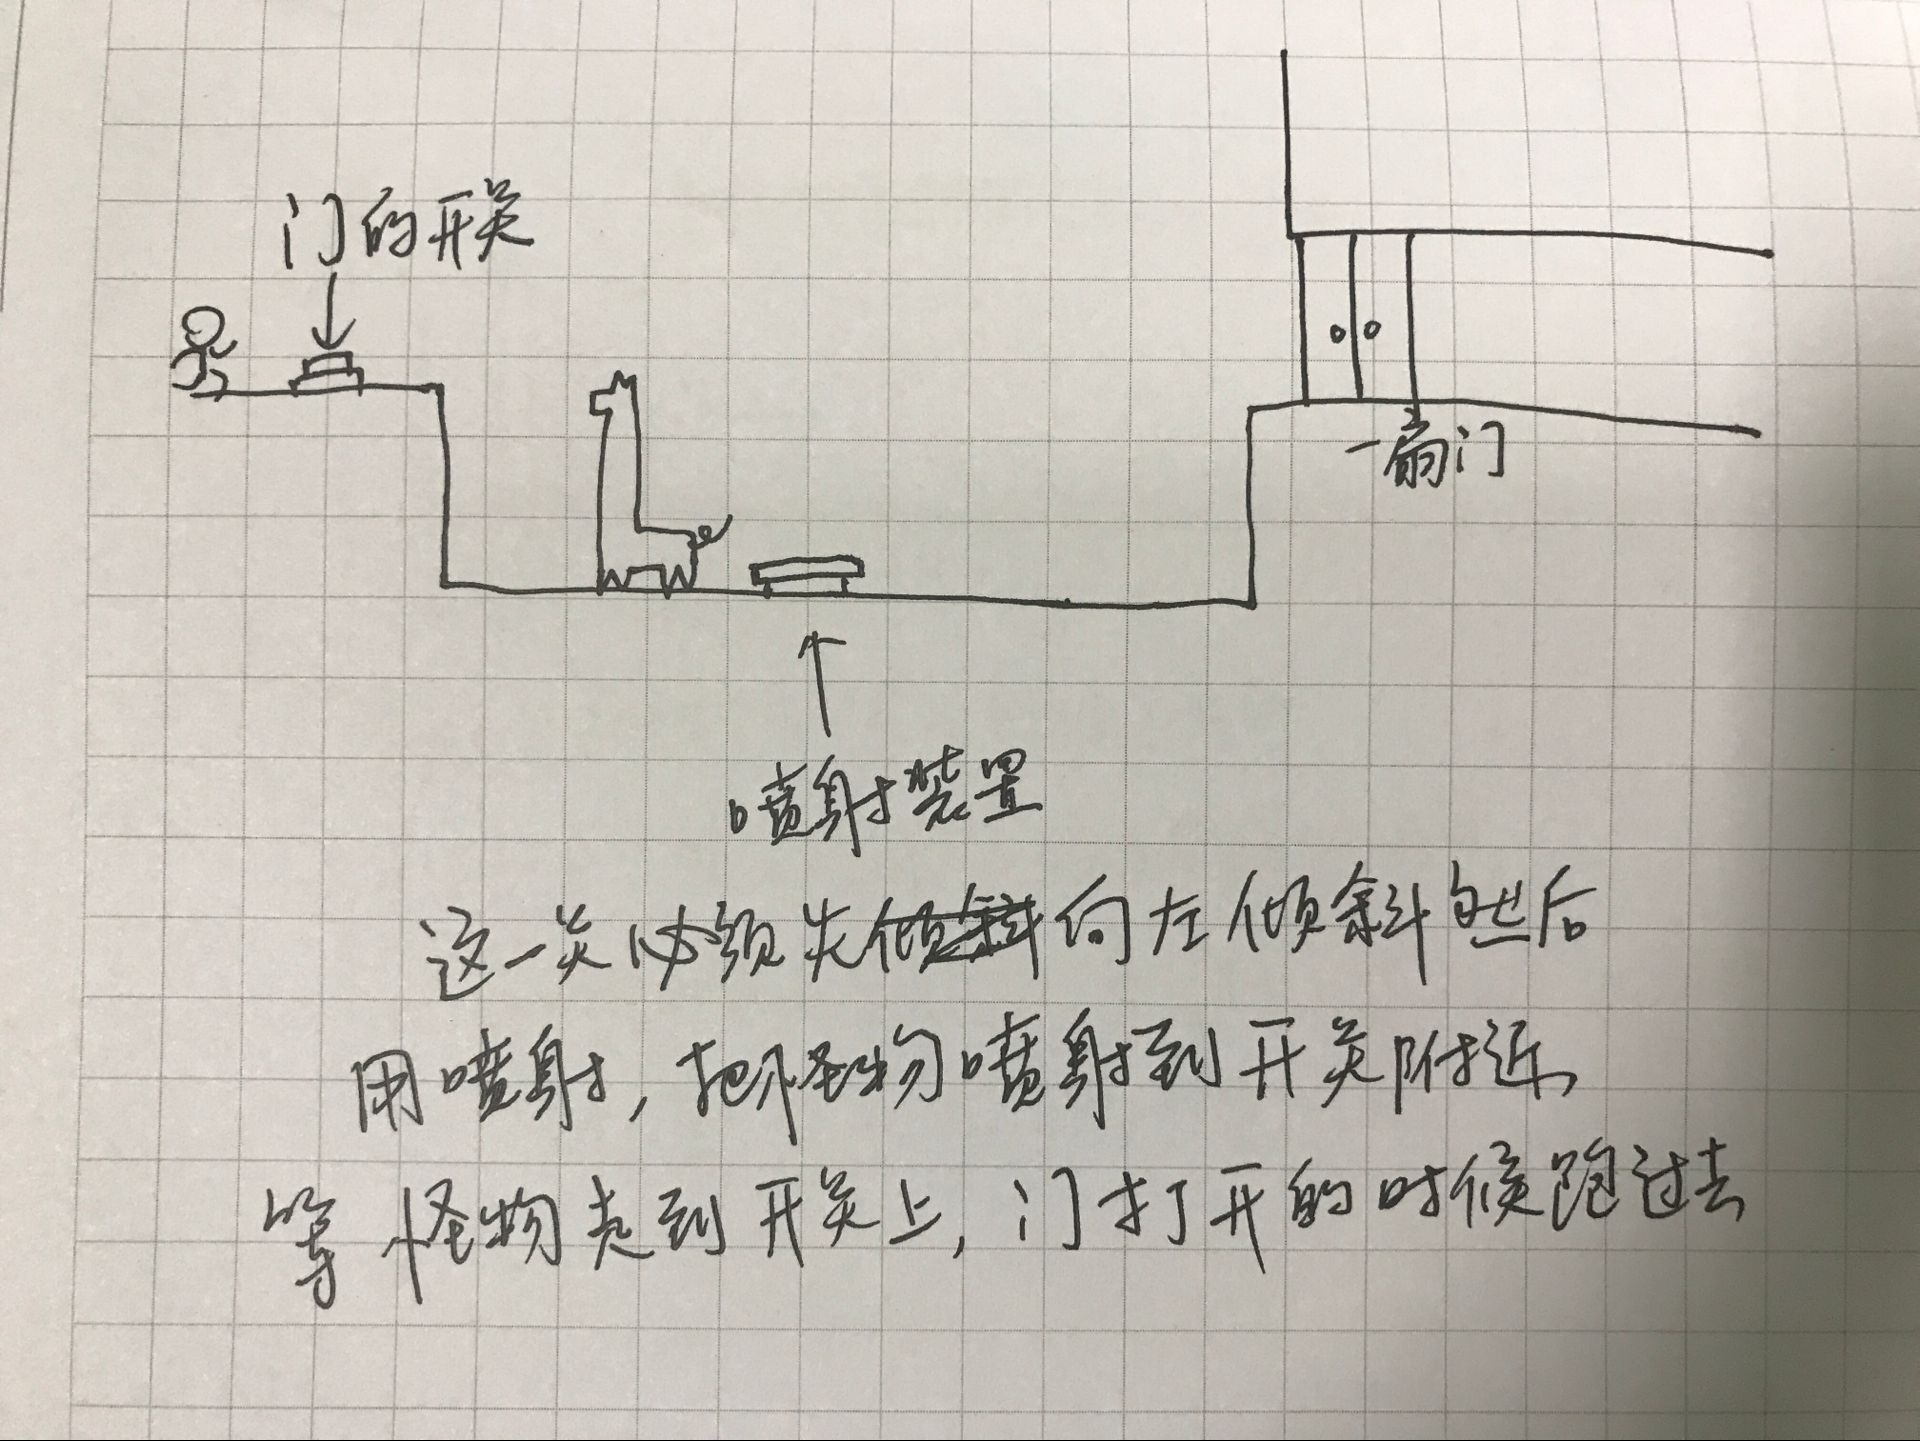 门的开关
一扇门
喷射装置
这一关必须先倾斜向左倾斜然后
用喷射，把怪物喷射到开关附近
等怪物走到开关上，门打开的时候跑过去